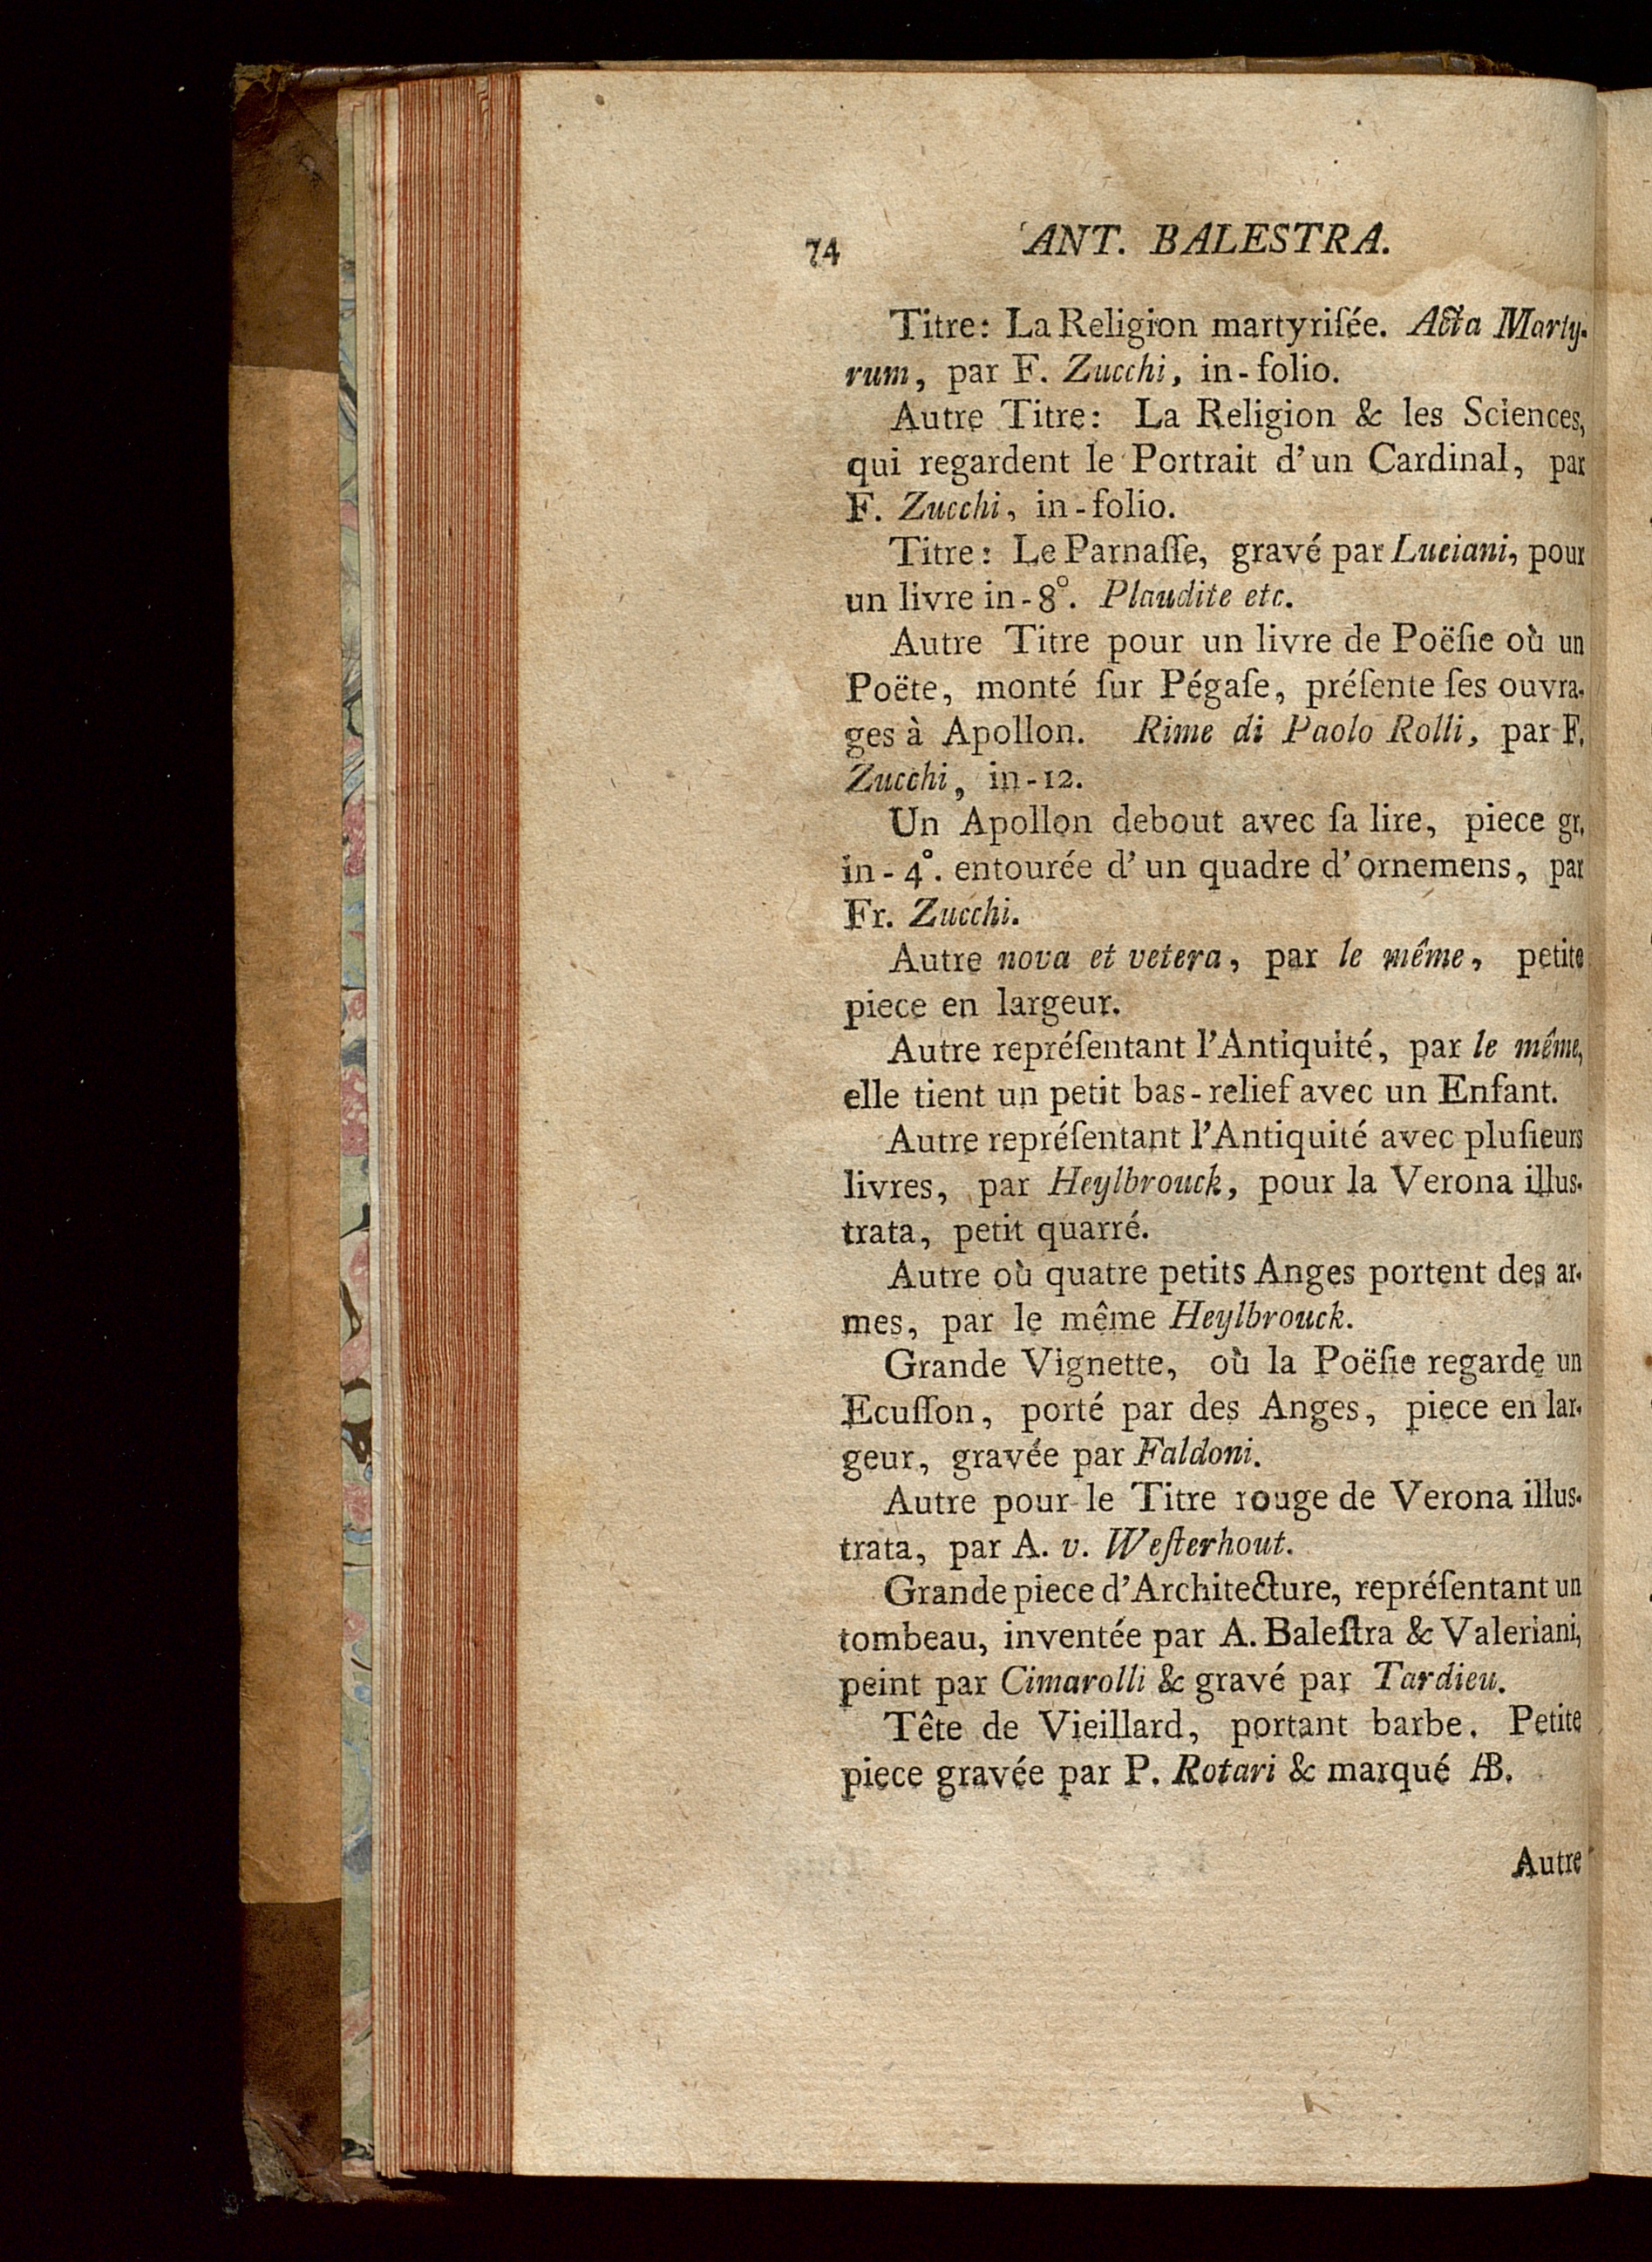 74 ANT. BALESTRA.
Titre: La Religion martyriſée. Acta Marty-
rum, par F. Zucchi, in-folio.
Autre Titre: La Religion & les Sciences,
qui regardent le Portrait d'un Cardinal, par
F. Zucchi, in-folio.
Titre: Le Parnaſſe, gravé par Luciani, pour
un livre in-8°. Plaudite etc.
Autre Titre pour un livre de Poëſie où un
Poëte, monté ſur Pégaſe, préſente ſes ouvra-
ges à Apollon. Rime di Paolo Rolli, par F.
Zucchi, in-12.
Un Apollon debout avec ſa lire, piece gr.
in-4°. entourée d'un quadre d'ornemens, par
Fr. Zucchi.
Autre nova et vetera, par le même, petite
piece en largeur.
Autre repréſentant l'Antiquité, par le même,
elle tient un petit bas-relief avec un Enfant.
Autre repréſentant l'Antiquité avec pluſieurs
livres, par Heylbrouck, pour la Verona illus-
trata, petit quarré.
Autre où quatre petits Anges portent des ar-
mes, par le même Heylbrouck.
Grande Vignette, où la Poëſie regarde un
Ecuſſon, porté par des Anges, piece en lar-
geur, gravée par Faldoni.
Autre pour le Titre rouge de Verona illus-
trata, par A. v. Weſterhout.
Grande piece d'Architecture, repréſentant un
tombeau, inventée par A. Baleſtra & Valeriani,
peint par Cimarolli & gravé par Tardieu.
Tête de Vieillard, portant barbe. Petite
piece gravée par P. Rotari & marqué AB.
Autre